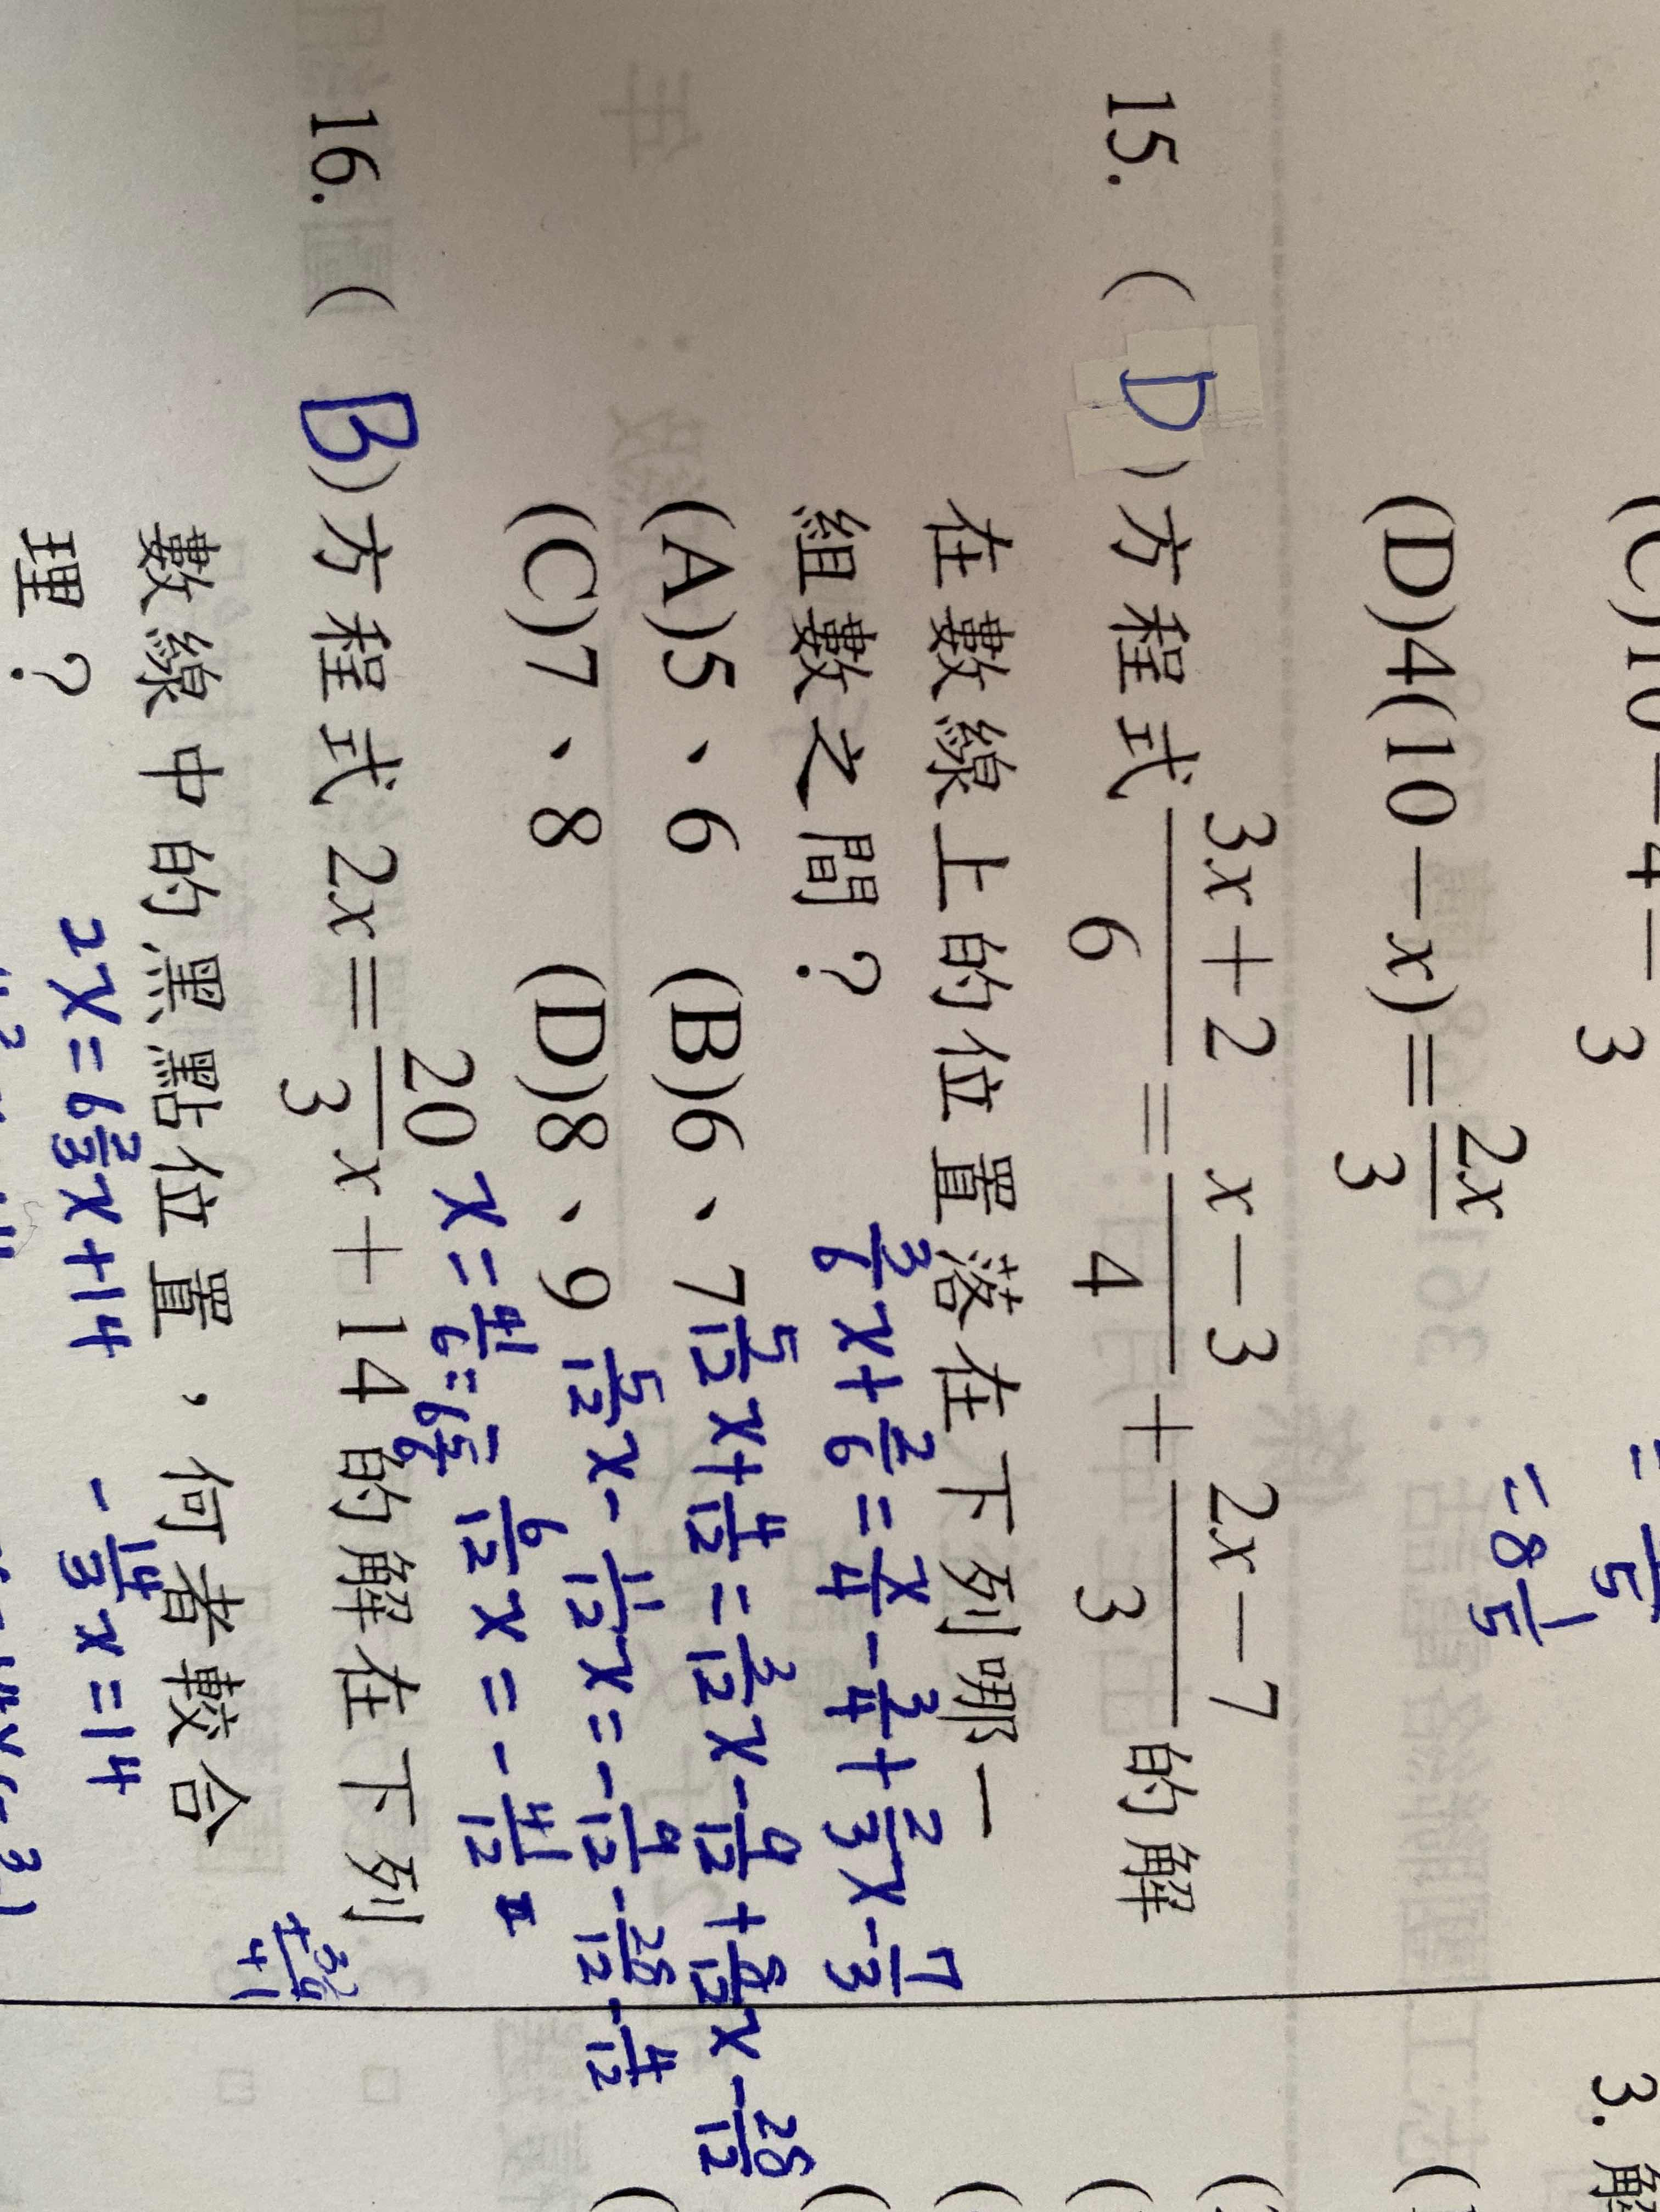 (D)4(10－x)＝2x/3
＝8 1/5
15. ( D )方程式 (3x＋2)/6 ＝ (x－3)/4 ＋ (2x－7)/3 的解
在數線上的位置落在下列哪一
組數之間？
3/6 x + 2/6 = x/4 - 3/4 + 2/3 x - 7/3
(A)5、6 (B)6、7
5/12 x + 4/12 = 3/12 x - 9/12 + 8/12 x - 28/12
(C)7、8 (D)8、9
5/12 x - 11/12 x = - 9/12 - 28/12 - 4/12
x = 41/6 = 6 5/6
6/12 x = - 41/12
16. ( B )方程式 2x＝20/3 x＋14 的解在下列
數線中的黑點位置，何者較合
理？
2x = 6 2/3 x + 14
- 14/3 x = 14
3. 解